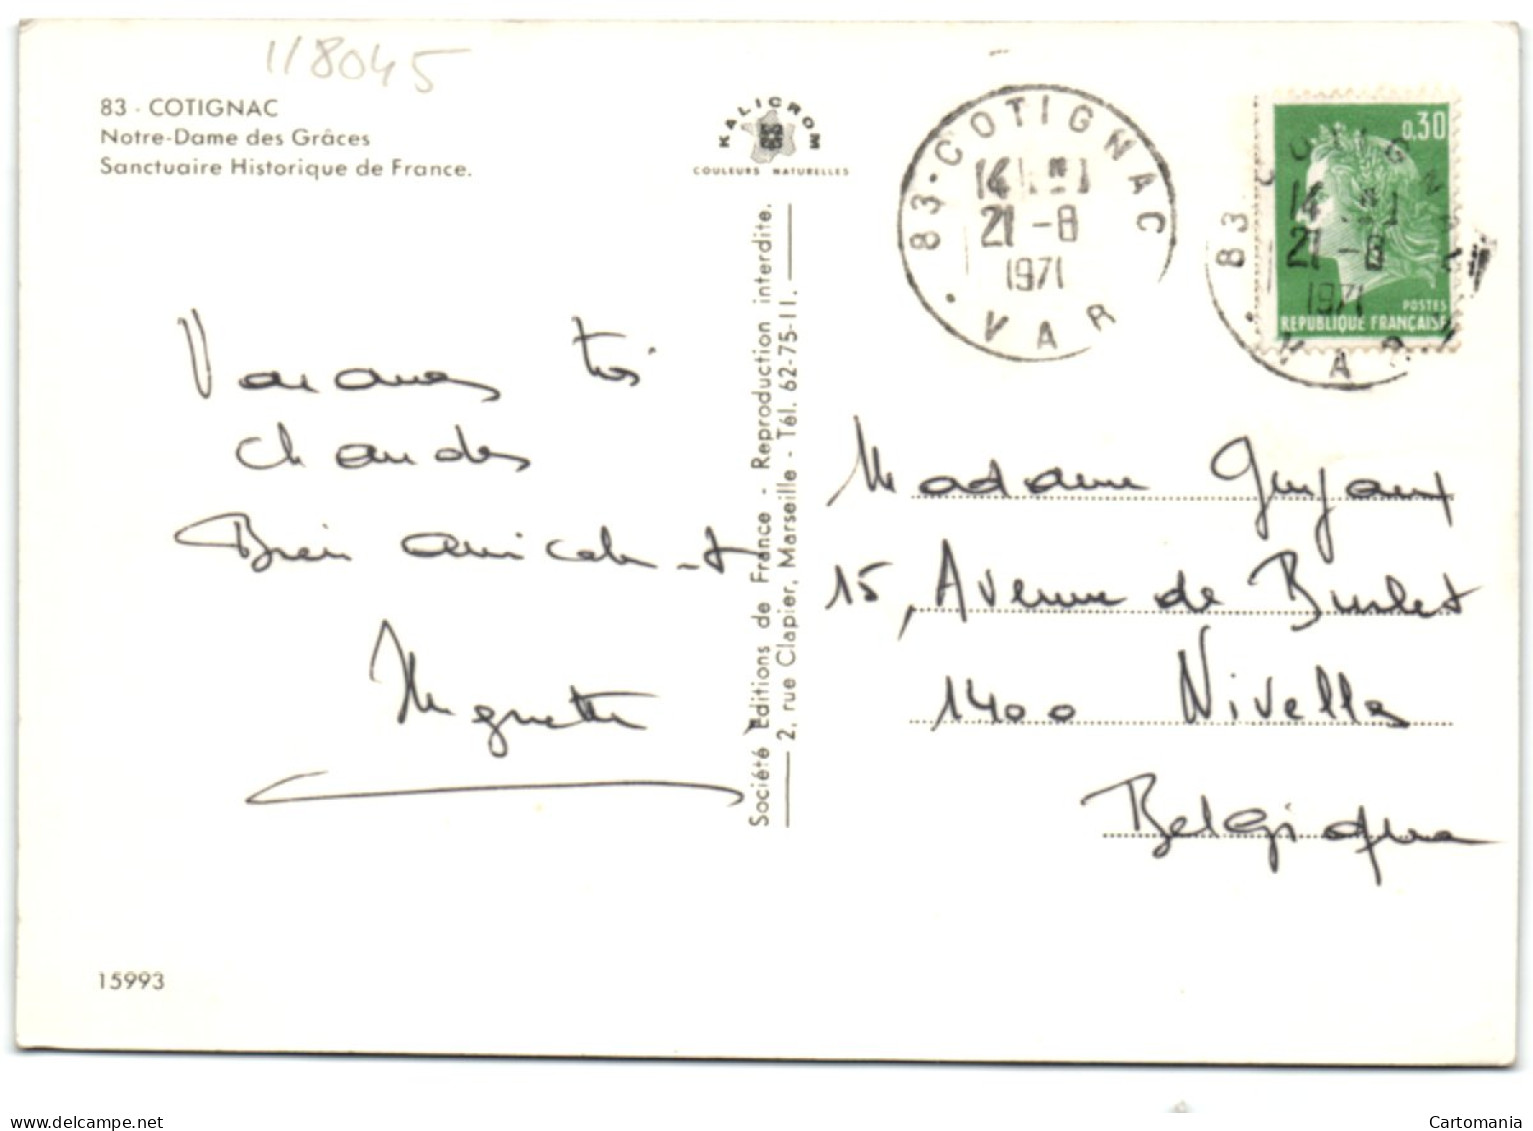 118045
83 - COTIGNAC
Notre-Dame des Grâces
Sanctuaire Historique de France.
KALICROM
COULEURS NATURELLES
83 - COTIGNAC
14
21 -8
1971
VAR
0,30
POSTES
REPUBLIQUE FRANÇAISE
83 COTIGNAC
14
21 -8
1971
VAR
Vacances très
chaudes
Bien amicalement
Huguette
Société Editions de France - Reproduction interdite.
2, rue Clapier, Marseille - Tél. 62-75-11.
Madame Guyaux
15, Avenue de Burlet
1400 Nivelles
Belgique
15993
Cartomania